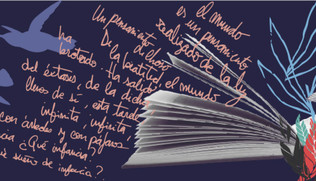 Un pensamiento
es el mundo
ha brotado
dichoso
un pensamiento
realizado de la luz
De la beatitud, el mundo
ha salido
del éxtasis, de la dicha
llenos de sí, esta tarde
infinita, infinita
con árboles y con pájaros
cia ¿Qué infancia?
sueño de infancia?